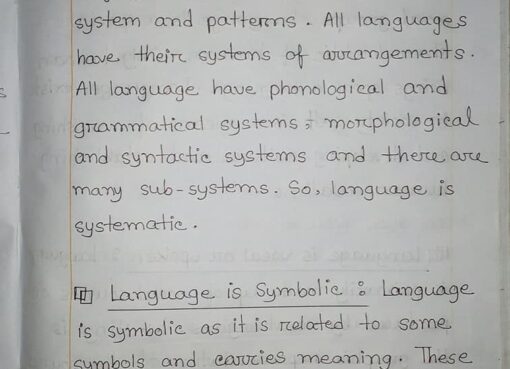 system and patterns. All languages
have their systems of arrangements.
All language have phonological and
grammatical systems; morphological
and syntactic systems and there are
many sub-systems. So, language is
systematic.
Language is Symbolic: Language
is symbolic as it is related to some
symbols and carries meaning. These